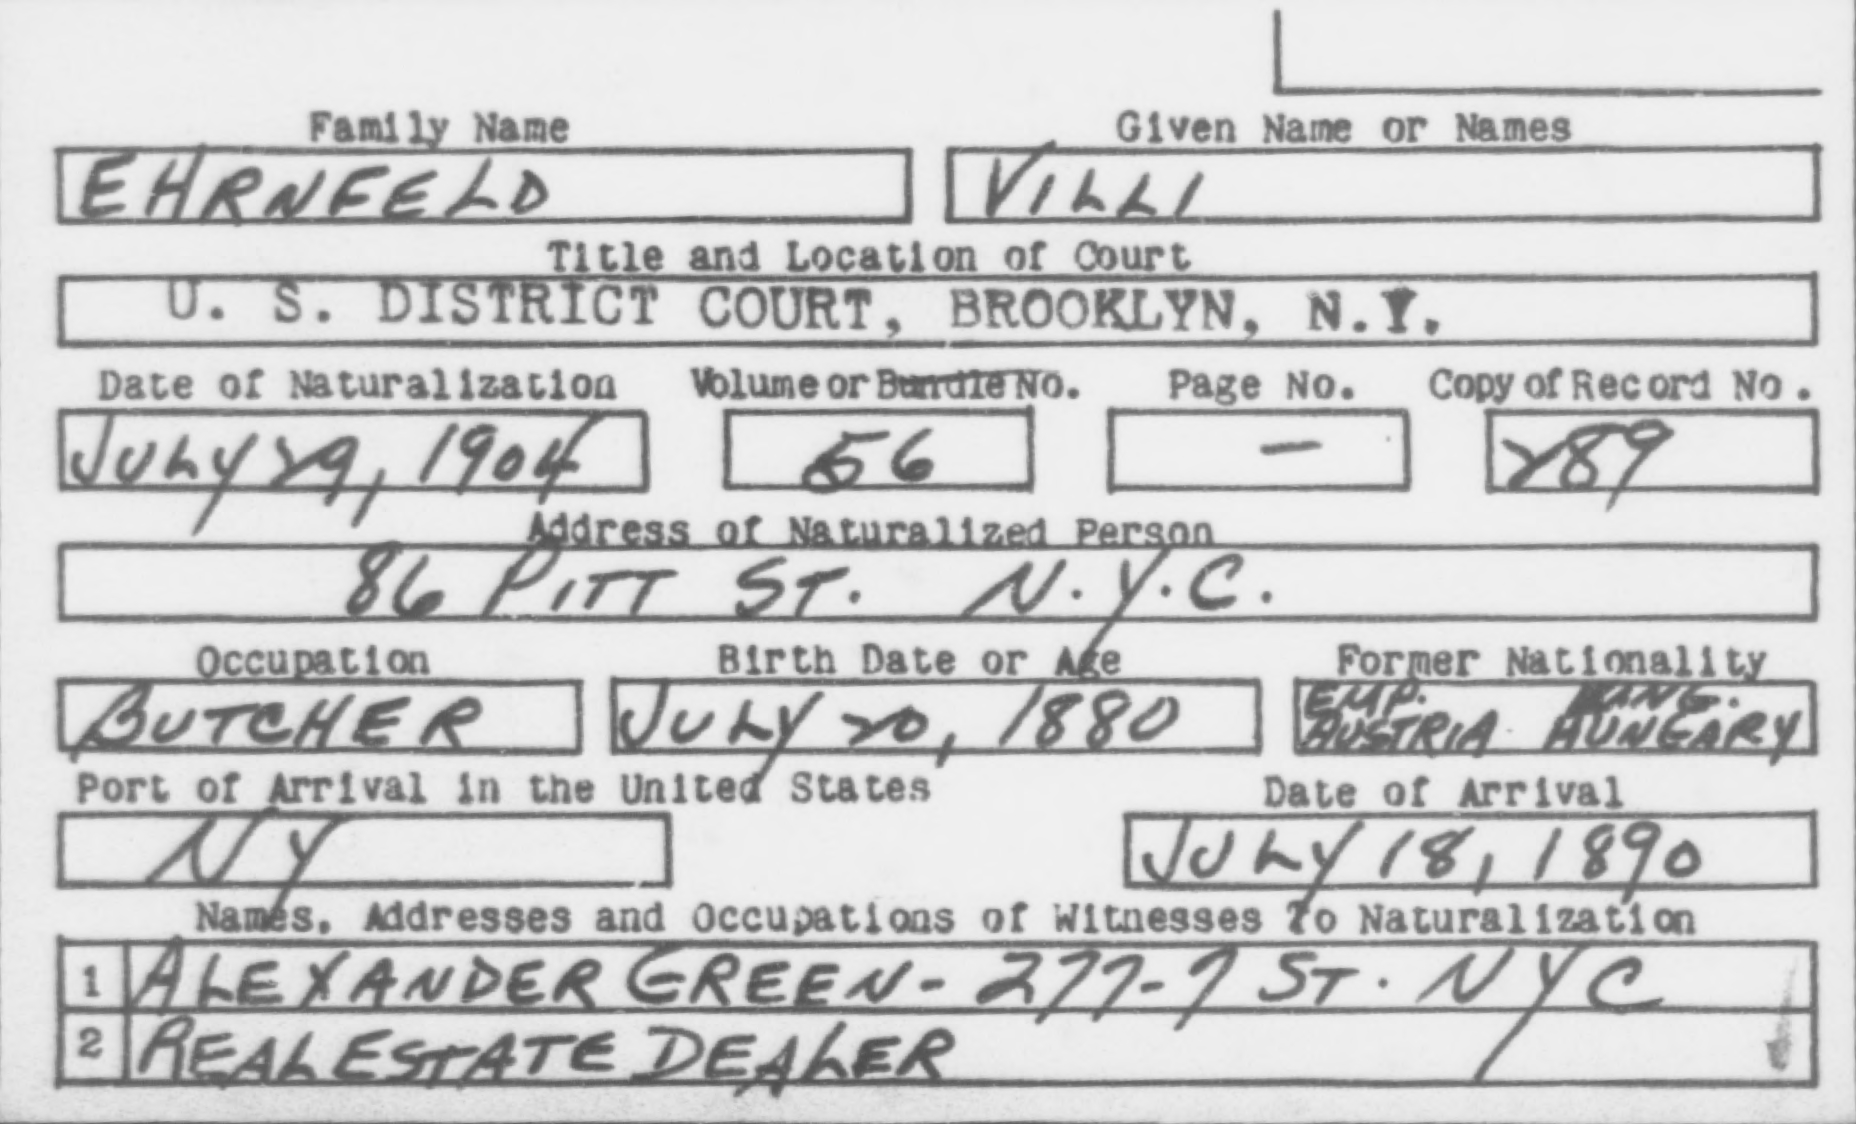 Family Name Given Name or Names
EHRNFELD VILLI
Title and Location of Court
U. S. DISTRICT COURT, BROOKLYN, N.Y.
Date of Naturalization Volume or Bundle No. Page No. Copy of Record No.
JULY 29, 1904 56 — 289
Address of Naturalized Person
86 PITT ST. N.Y.C.
Occupation Birth Date or Age Former Nationality
BUTCHER JULY 20, 1880 EMP. KING.
AUSTRIA HUNGARY
Port of Arrival in the United States Date of Arrival
NY JULY 18, 1890
Names, Addresses and Occupations of Witnesses To Naturalization
1 ALEXANDER GREEN - 277-7 ST. NYC
2 REAL ESTATE DEALER